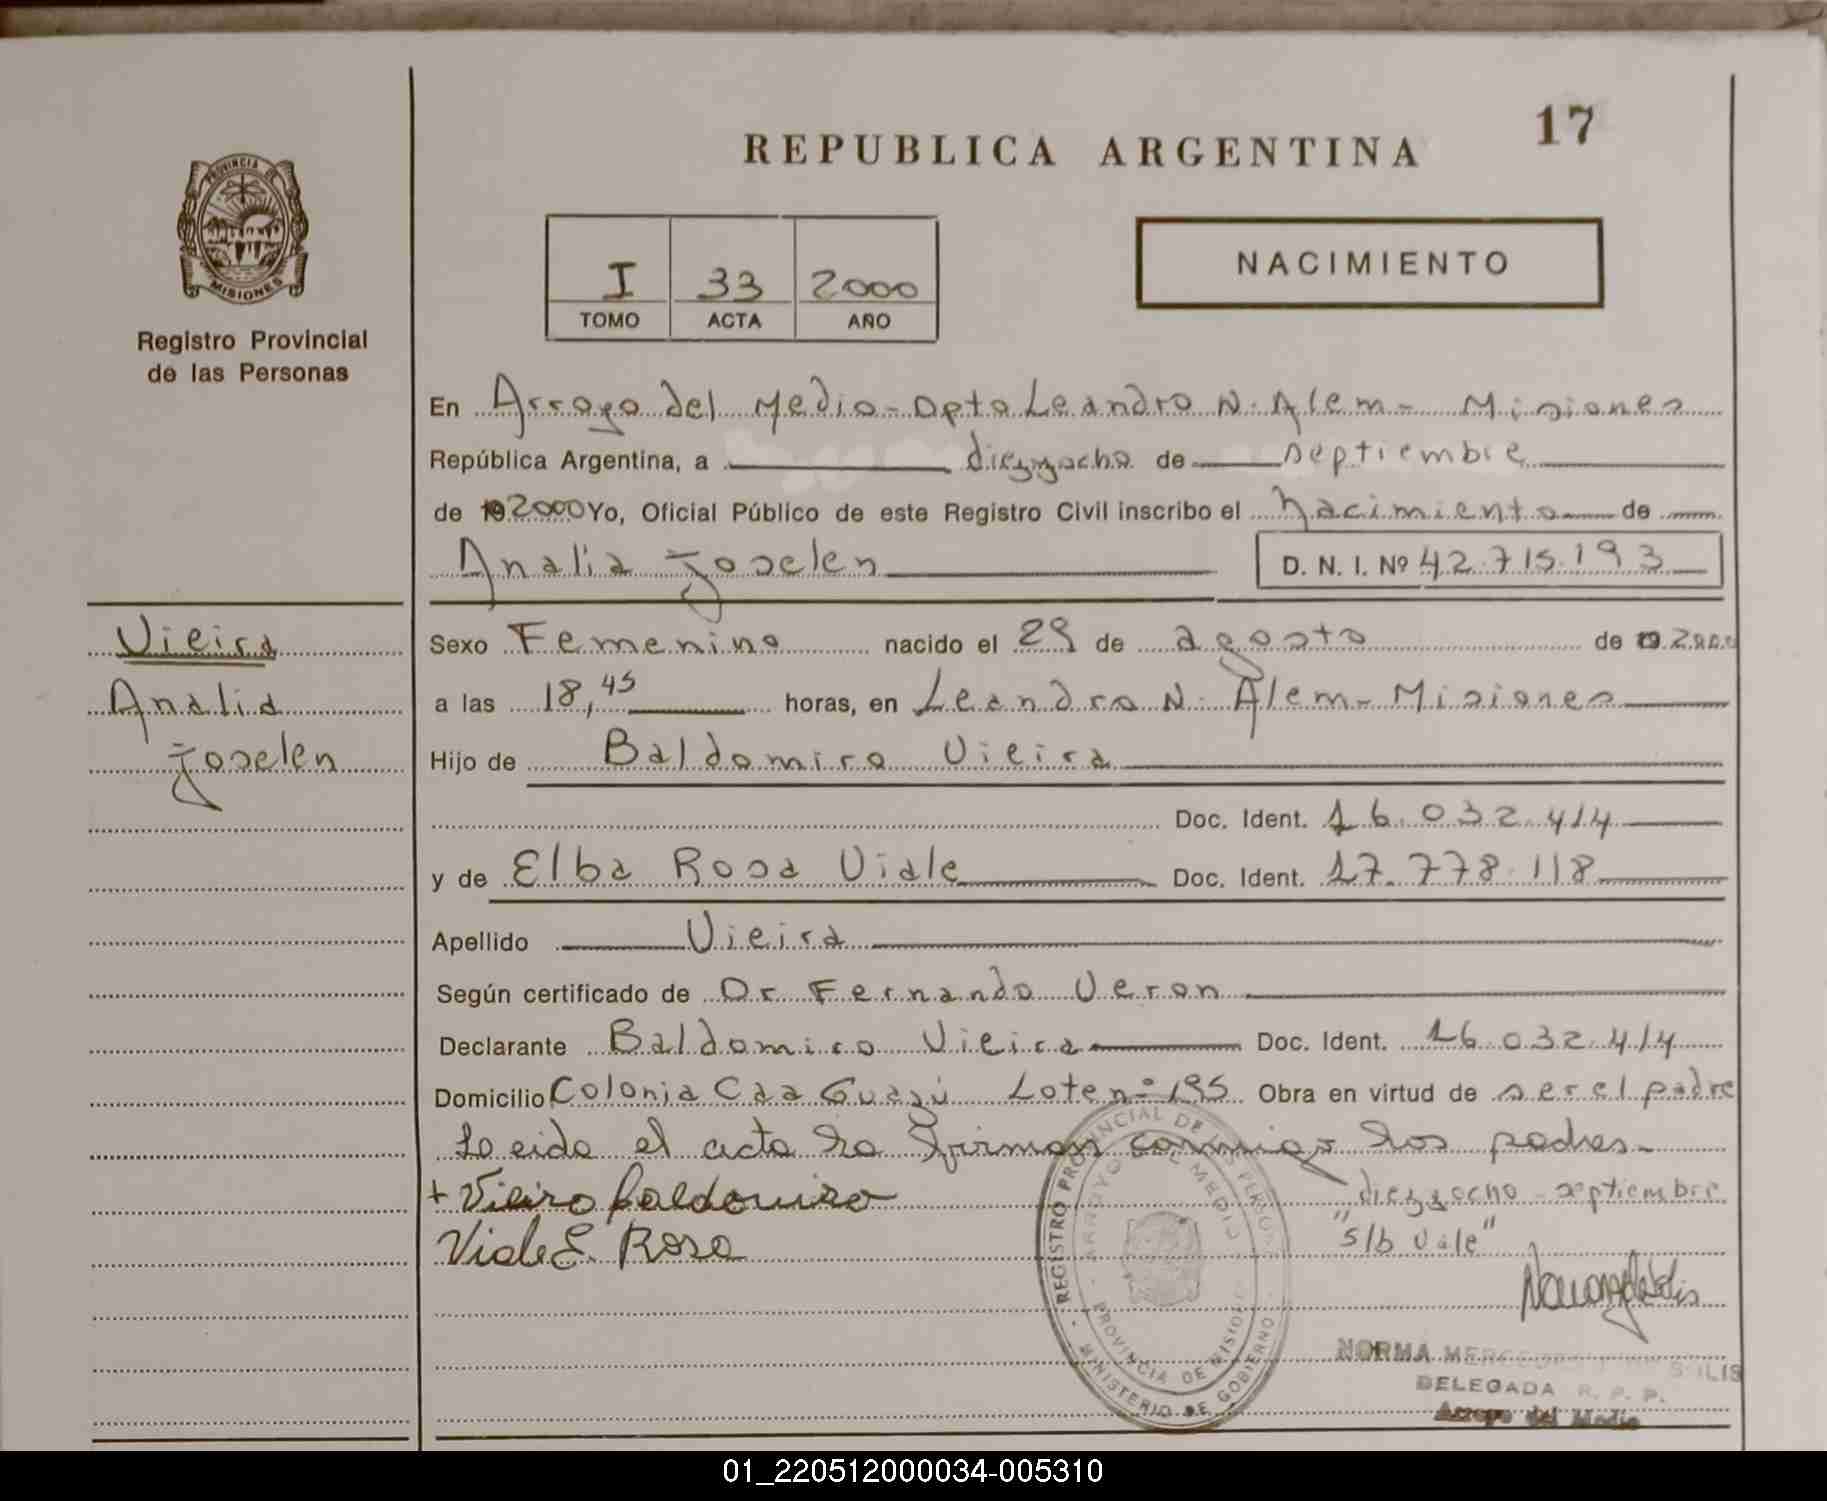 17
REPUBLICA ARGENTINA
PROVINCIA DE
MISIONES
Registro Provincial
de las Personas
I 33 2000
TOMO ACTA AÑO
NACIMIENTO
En Arroyo del Medio - Dpto Leandro N. Alem - Misiones
República Argentina, a dieziocho de septiembre
de 19 2000 Yo, Oficial Público de este Registro Civil inscribo el nacimiento de
Analia Joselen D. N. I. Nº 42.715.193
Vieira
Analia
Joselen
Sexo Femenino nacido el 29 de agosto de 19 2000
a las 18,45 horas, en Leandro N. Alem - Misiones
Hijo de Baldomiro Vieira
Doc. Ident. 16.032.414
y de Elba Rosa Viale Doc. Ident. 17.778.118
Apellido Vieira
Según certificado de Dr Fernando Veron
Declarante Baldomiro Vieira Doc. Ident. 16.032.414
Domicilio Colonia Caa Guazú Lote nº 195 Obra en virtud de ser el padre
Leida el acta la firman conmigo los padres -
+ Vieira Baldomiro diezyocho - septiembre
Viale E. Rosa "s/b vale"
REGISTRO PROVINCIAL DE LAS PERSONAS
ARROYO DEL MEDIO
PROVINCIA DE MISIONES
MINISTERIO DE GOBIERNO
NORMA SOLIS
DELEGADA R. P. P.
Arroyo del Medio
01_220512000034-005310